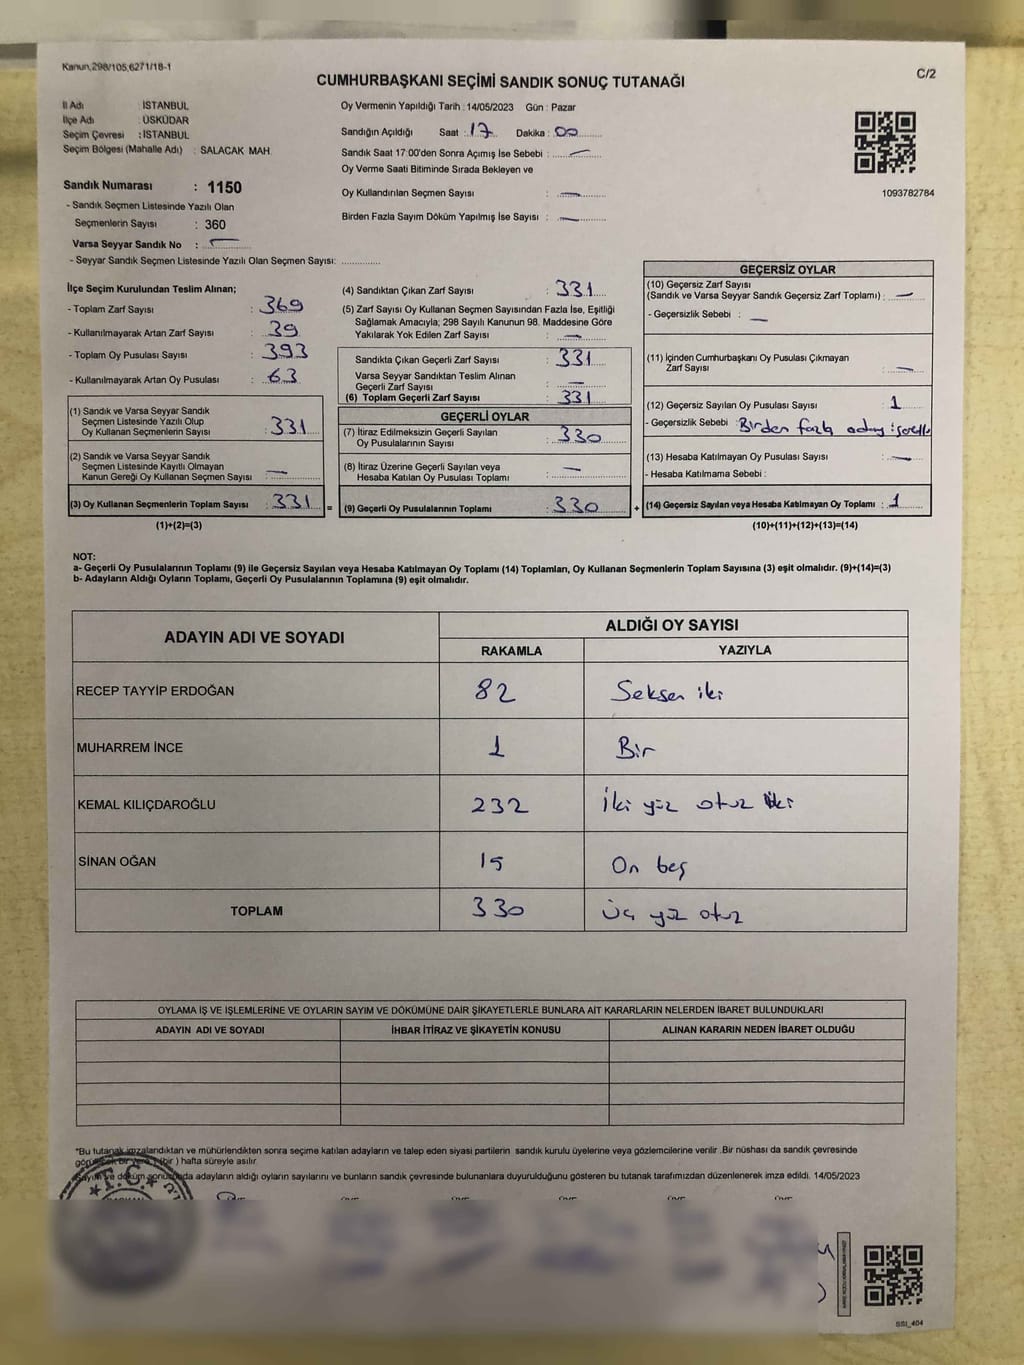 Kanun,298/105,6271/18-1
C/2
CUMHURBAŞKANI SEÇİMİ SANDIK SONUÇ TUTANAĞI
İl Adı : İSTANBUL
İlçe Adı : ÜSKÜDAR
Seçim Çevresi : İSTANBUL
Seçim Bölgesi (Mahalle Adı) : SALACAK MAH.
Sandık Numarası : 1150
- Sandık Seçmen Listesinde Yazılı Olan
Seçmenlerin Sayısı : 360
Varsa Seyyar Sandık No : —
- Seyyar Sandık Seçmen Listesinde Yazılı Olan Seçmen Sayısı: ..............
Oy Vermenin Yapıldığı Tarih : 14/05/2023 Gün : Pazar
Sandığın Açıldığı Saat : 17 Dakika : 00
Sandık Saat 17:00'den Sonra Açımış İse Sebebi : —
Oy Verme Saati Bitiminde Sırada Bekleyen ve
Oy Kullandırılan Seçmen Sayısı : —
Birden Fazla Sayım Döküm Yapılmış İse Sayısı : —
1093782784
İlçe Seçim Kurulundan Teslim Alınan;
- Toplam Zarf Sayısı : 369
- Kullanılmayarak Artan Zarf Sayısı : 39
- Toplam Oy Pusulası Sayısı : 393
- Kullanılmayarak Artan Oy Pusulası : 63
(1) Sandık ve Varsa Seyyar Sandık
Seçmen Listesinde Yazılı Olup
Oy Kullanan Seçmenlerin Sayısı : 331
(2) Sandık ve Varsa Seyyar Sandık
Seçmen Listesinde Kayıtlı Olmayan
Kanun Gereği Oy Kullanan Seçmen Sayısı : —
(3) Oy Kullanan Seçmenlerin Toplam Sayısı : 331 =
(1)+(2)=(3)
(4) Sandıktan Çıkan Zarf Sayısı : 331
(5) Zarf Sayısı Oy Kullanan Seçmen Sayısından Fazla İse, Eşitliği
Sağlamak Amacıyla; 298 Sayılı Kanunun 98. Maddesine Göre
Yakılarak Yok Edilen Zarf Sayısı : —
Sandıkta Çıkan Geçerli Zarf Sayısı : 331
Varsa Seyyar Sandıktan Teslim Alınan
Geçerli Zarf Sayısı : —
(6) Toplam Geçerli Zarf Sayısı : 331
GEÇERLİ OYLAR
(7) İtiraz Edilmeksizin Geçerli Sayılan
Oy Pusulalarının Sayısı : 330
(8) İtiraz Üzerine Geçerli Sayılan veya
Hesaba Katılan Oy Pusulası Toplamı : —
(9) Geçerli Oy Pusulalarının Toplamı : 330 +
GEÇERSİZ OYLAR
(10) Geçersiz Zarf Sayısı
(Sandık ve Varsa Seyyar Sandık Geçersiz Zarf Toplamı) : —
- Geçersizlik Sebebi : —
(11) İçinden Cumhurbaşkanı Oy Pusulası Çıkmayan
Zarf Sayısı : —
(12) Geçersiz Sayılan Oy Pusulası Sayısı : 1
- Geçersizlik Sebebi : Birden fazla aday
(13) Hesaba Katılmayan Oy Pusulası Sayısı : —
- Hesaba Katılmama Sebebi :
(14) Geçersiz Sayılan veya Hesaba Katılmayan Oy Toplamı : 1
(10)+(11)+(12)+(13)=(14)
NOT:
a- Geçerli Oy Pusulalarının Toplamı (9) ile Geçersiz Sayılan veya Hesaba Katılmayan Oy Toplamı (14) Toplamları, Oy Kullanan Seçmenlerin Toplam Sayısına (3) eşit olmalıdır. (9)+(14)=(3)
b- Adayların Aldığı Oyların Toplamı, Geçerli Oy Pusulalarının Toplamına (9) eşit olmalıdır.
ADAYIN ADI VE SOYADI ALDIĞI OY SAYISI
RAKAMLA YAZIYLA
RECEP TAYYİP ERDOĞAN 82 Seksen iki
MUHARREM İNCE 1 Bir
KEMAL KILIÇDAROĞLU 232 İki yüz otuz iki
SİNAN OĞAN 15 On beş
TOPLAM 330 Üç yüz otuz
OYLAMA İŞ VE İŞLEMLERİNE VE OYLARIN SAYIM VE DÖKÜMÜNE DAİR ŞİKAYETLERLE BUNLARA AİT KARARLARIN NELERDEN İBARET BULUNDUKLARI
ADAYIN ADI VE SOYADI İHBAR İTİRAZ VE ŞİKAYETİN KONUSU ALINAN KARARIN NEDEN İBARET OLDUĞU
*Bu tutanak imzalandıktan ve mühürlendikten sonra seçime katılan adayların ve talep eden siyasi partilerin sandık kurulu üyelerine veya gözlemcilerine verilir. Bir nüshası da sandık çevresinde
görülecek bir yere 1 (bir ) hafta süreyle asılır.
Sayım ve döküm sonucunda adayların aldığı oyların sayılarını ve bunların sandık çevresinde bulunanlara duyurulduğunu gösteren bu tutanak tarafımızdan düzenlenerek imza edildi. 14/05/2023
T.C.
SSI_404